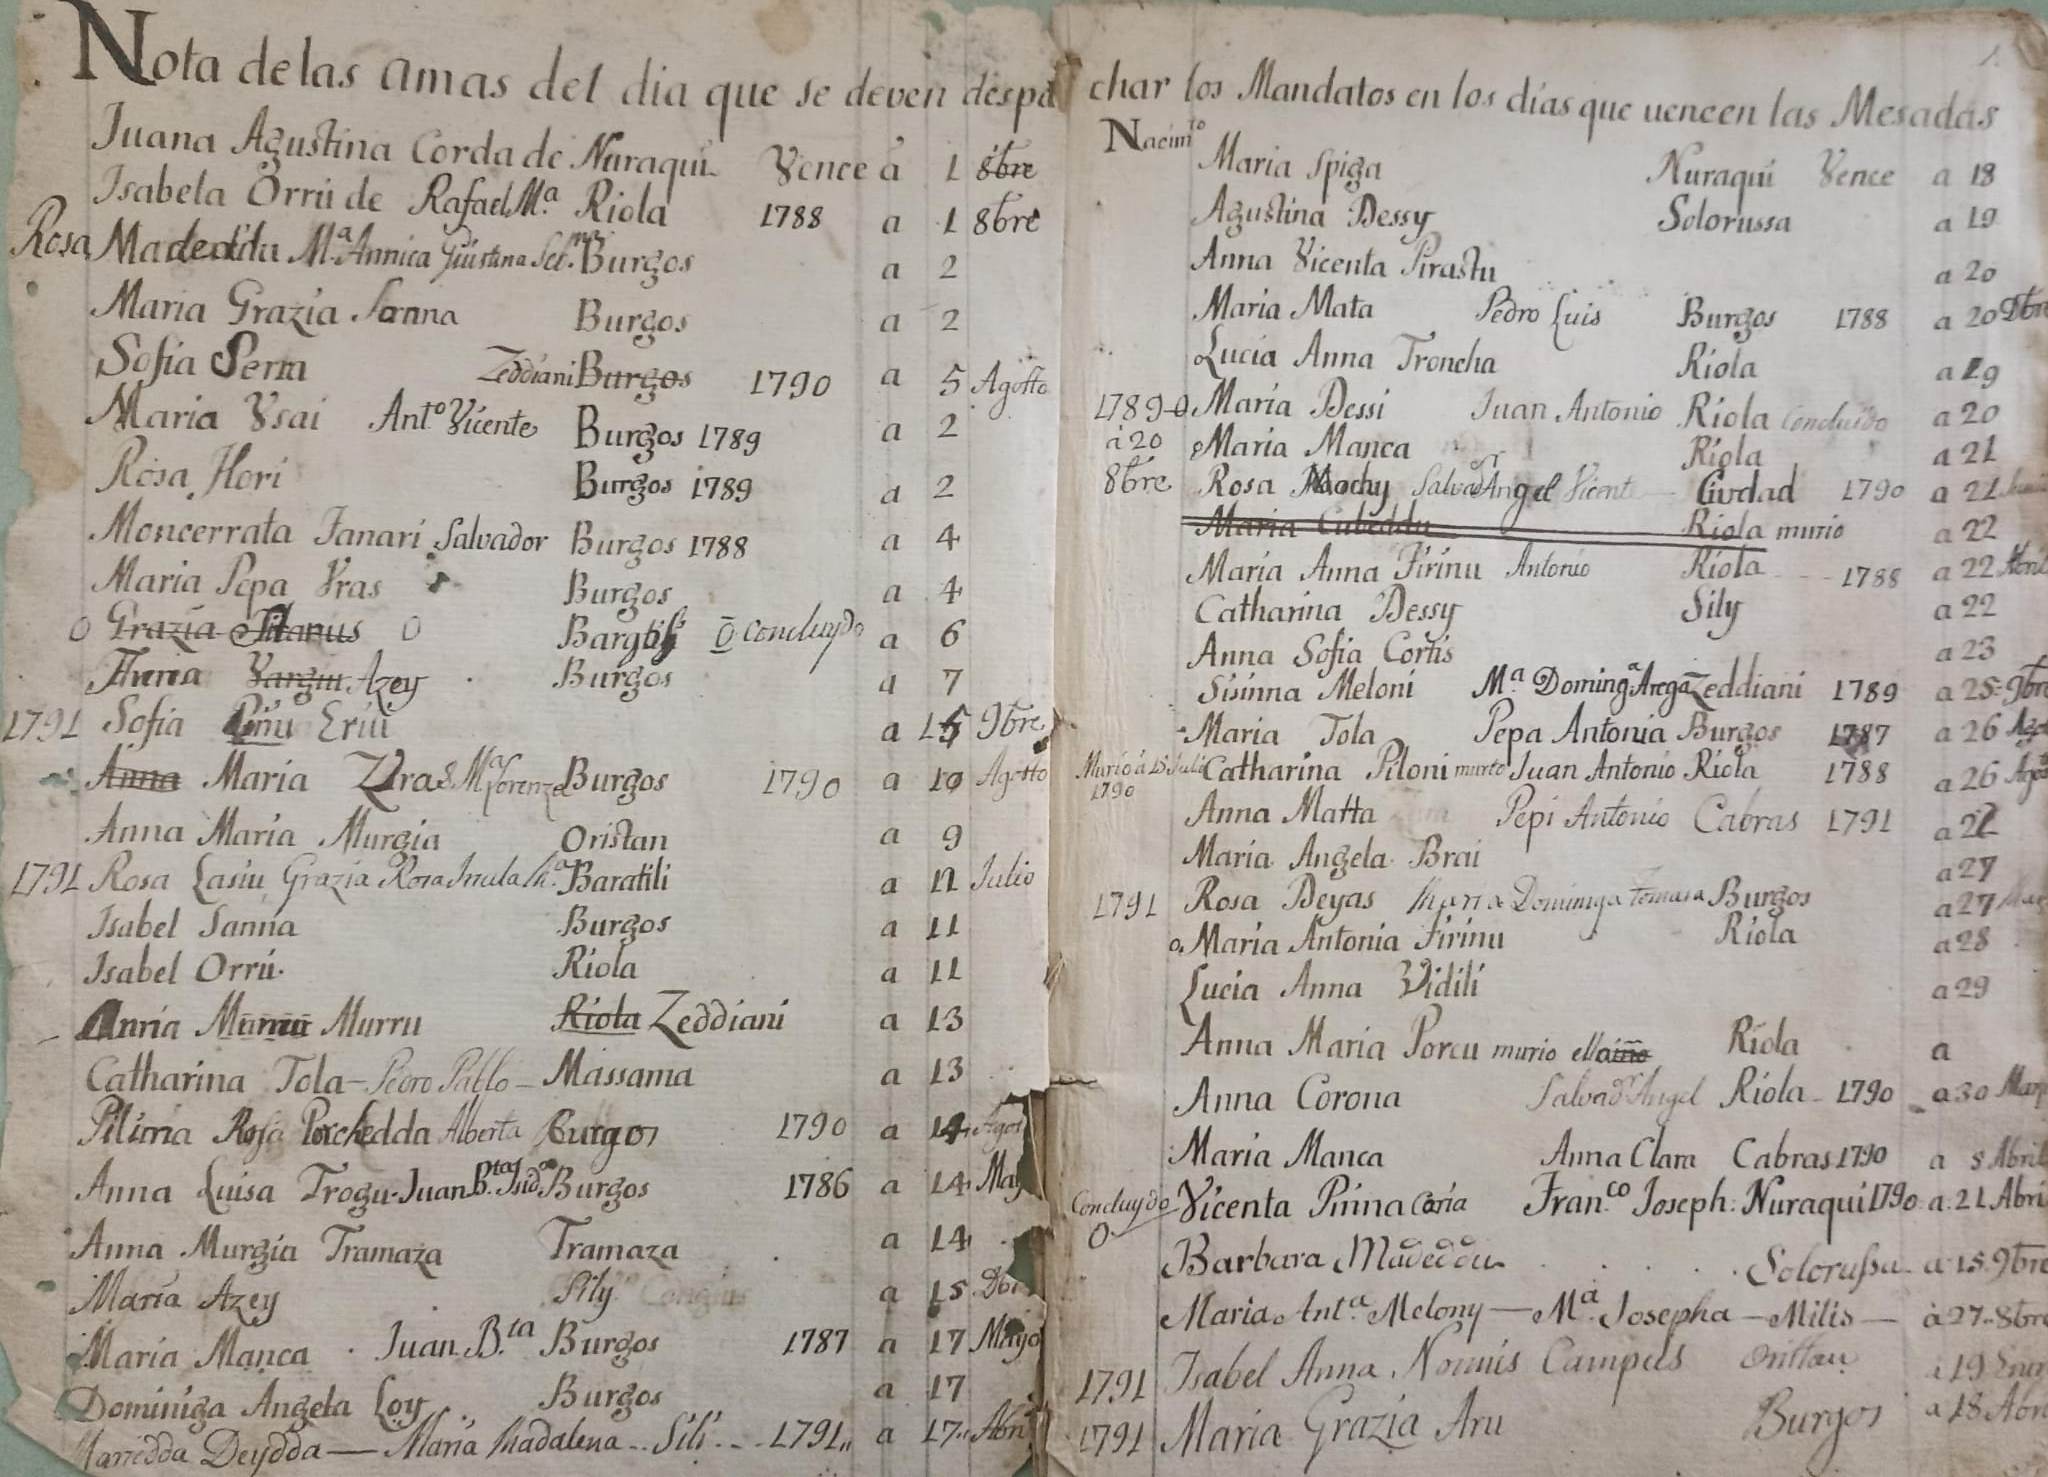 Nota de las amas del dia que se deven despa
Juana Agustina Corda de Nuraqui Vence a 1 8bre
Isabela Orrù de Rafael Mª Riola 1788 a 1 8bre
Rosa Madeddu Mª Annica Giustina Burgos a 2
Maria Grazia Sanna Burgos a 2
Sofia Perra Zeddiani Burgos 1790 a 5 Agosto
Maria Usai Antº Vicente Burgos 1789 a 2
Rosa Flori Burgos 1789 a 2
Moncerrata Fanari Salvador Burgos 1788 a 4
Maria Pepa Vras Burgos a 4
O Grazia Titanus O O concluydo a 6
Vargiu Azey Burgos a 7
1791 Sofia Eriu a 15 9bre
Anna Maria Vras Mª Lorenza Burgos 1790 a 10 Agosto
Anna Maria Murgia Oristan a 9
1791 Rosa Lasiu Grazia Rosa Baratili a 11 Julio
Isabel Sanna Burgos a 11
Isabel Orrú Riola a 11
Anna Murru Riola Zeddiani a 13
Catharina Tola - Pedro Pablo - Massama a 13
Rosa Porchedda Alberta Burgos 1790 a 14 Agos
Anna Luisa Trogu Juan Bta Isidº Burgos 1786 a 14 May
Anna Murgia Tramaza Tramaza a 14
Maria Azey Sily a 15 Dbr
Maria Manca Juan Bta Burgos 1787 a 17 Mayo
Dominiga Angela Loy Burgos a 17
Deydda — Maria Madalena Sili 1791 a 17 Abri
char los Mandatos en los días que vencen las Mesadas
Nacimto
Maria Spiga Nuraqui Vence a 18
Agustina Dessy Solorussa a 19
Anna Vicenta Pirastu a 20
Maria Mata Pedro Luis Burgos 1788 a 20 Dbre
Lucia Anna Troncha Riola a 19
1789 O Maria Dessi Juan Antonio Riola concluido a 20
a 20 Maria Manca Riola a 21
8bre Rosa Mochy Salvador Angel Vicente Ciudad 1790 a 21
Maria Cubeddu Riola murio a 22
Maria Anna Firinu Antonio Riola 1788 a 22 Abril
Catharina Dessy Sily a 22
Anna Sofia Cortis a 23
Sisinna Meloni Mª Domingª Arega Zeddiani 1789 a 25 9bre
Maria Tola Pepa Antonia Burgos 1787 a 26 Ago
Murio a 15 Julio 1790 Catharina Piloni murto Juan Antonio Riola 1788 a 26 Agos
Anna Matta Pepi Antonio Cabras 1791 a
Maria Angela Brai a 27
1791 Rosa Deyas Maria Dominiga Tomasa Burgos a 27
o Maria Antonia Firinu Riola a 28
Lucia Anna Vidili a 29
Anna Maria Porcu murio Riola a
Anna Corona Salvador Angel Riola 1790 a 30
Maria Manca Anna Clara Cabras 1790 a 8 Abril
Concluydo O Vicenta Pinna Coria Fran.co Joseph: Nuraqui 1790 a 21 Abri
Barbara Madeddu Solorussa a 15 9bre
Maria Antª Melony — Mª Josepha — Milis — à 27 8bre
1791 Isabel Anna Nonnis Campus a 19
1791 Maria Grazia Aru Burgos a 18 Abri